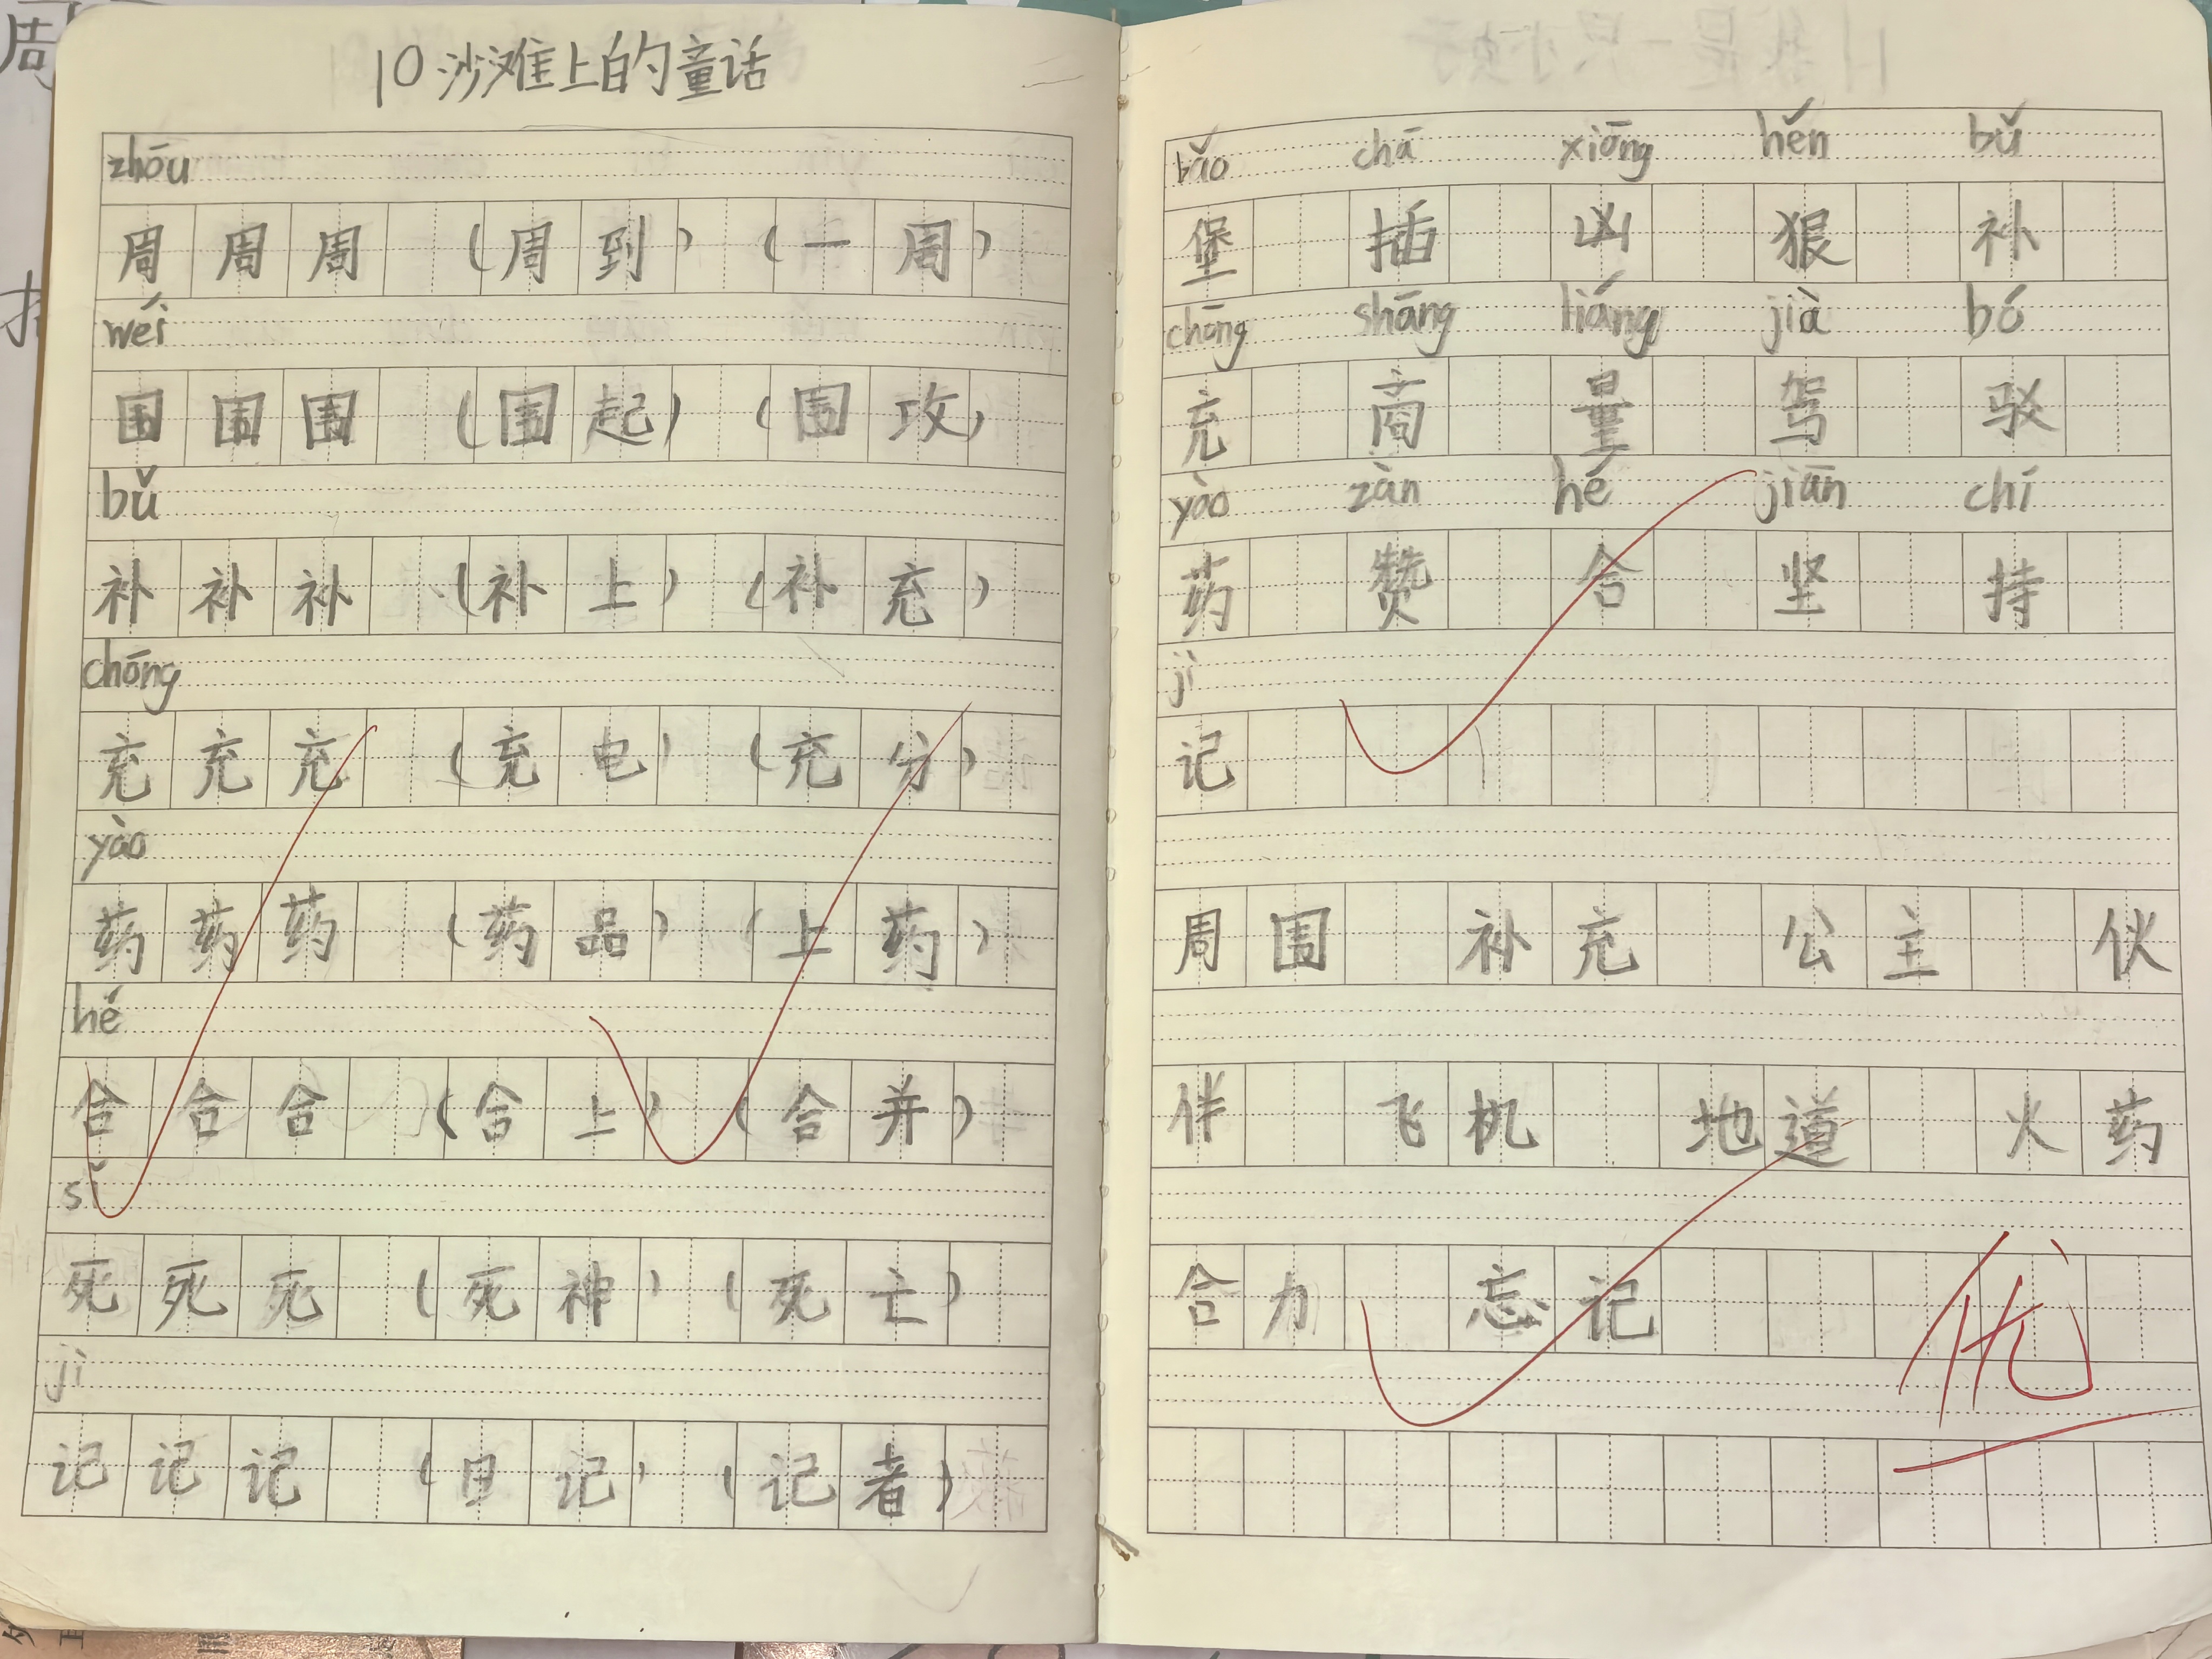 10 沙滩上的童话
zhōu
周 周 周 （周到） （一周）
wéi
围 围 围 （围起） （围攻）
bǔ
补 补 补 （补上） （补充）
chōng
充 充 充 （充电） （充分）
yào
药 药 药 （药品） （上药）
hé
合 合 合 （合上） （合并）
sǐ
死 死 死 （死神） （死亡）
jì
记 记 记 （日记） （记者）
bǎo chā xiōng hěn bǔ
堡 插 凶 狠 补
chōng shāng liáng jià bó
充 商 量 驾 驳
yào zàn hé jiān chí
药 赞 合 坚 持
jì
记
周围 补充 公主 伙
伴 飞机 地道 火药
合力 忘记
优